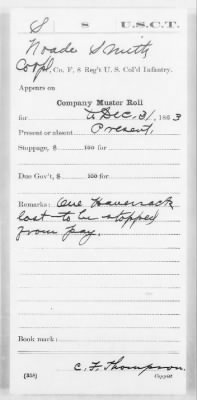 S 8 U.S.C.T.
Noade Smith
Corpl, Co. F, 8 Reg't U. S. Col'd Infantry.
Appears on
Company Muster Roll
for to Dec. 31, 1863
Present or absent Present.
Stoppage, $ 100 for
Due Gov't, $ 100 for
Remarks: One Haversack
lost to be stopped
from pay.
Book mark:
(358) C. F. Thompson.
Copyist